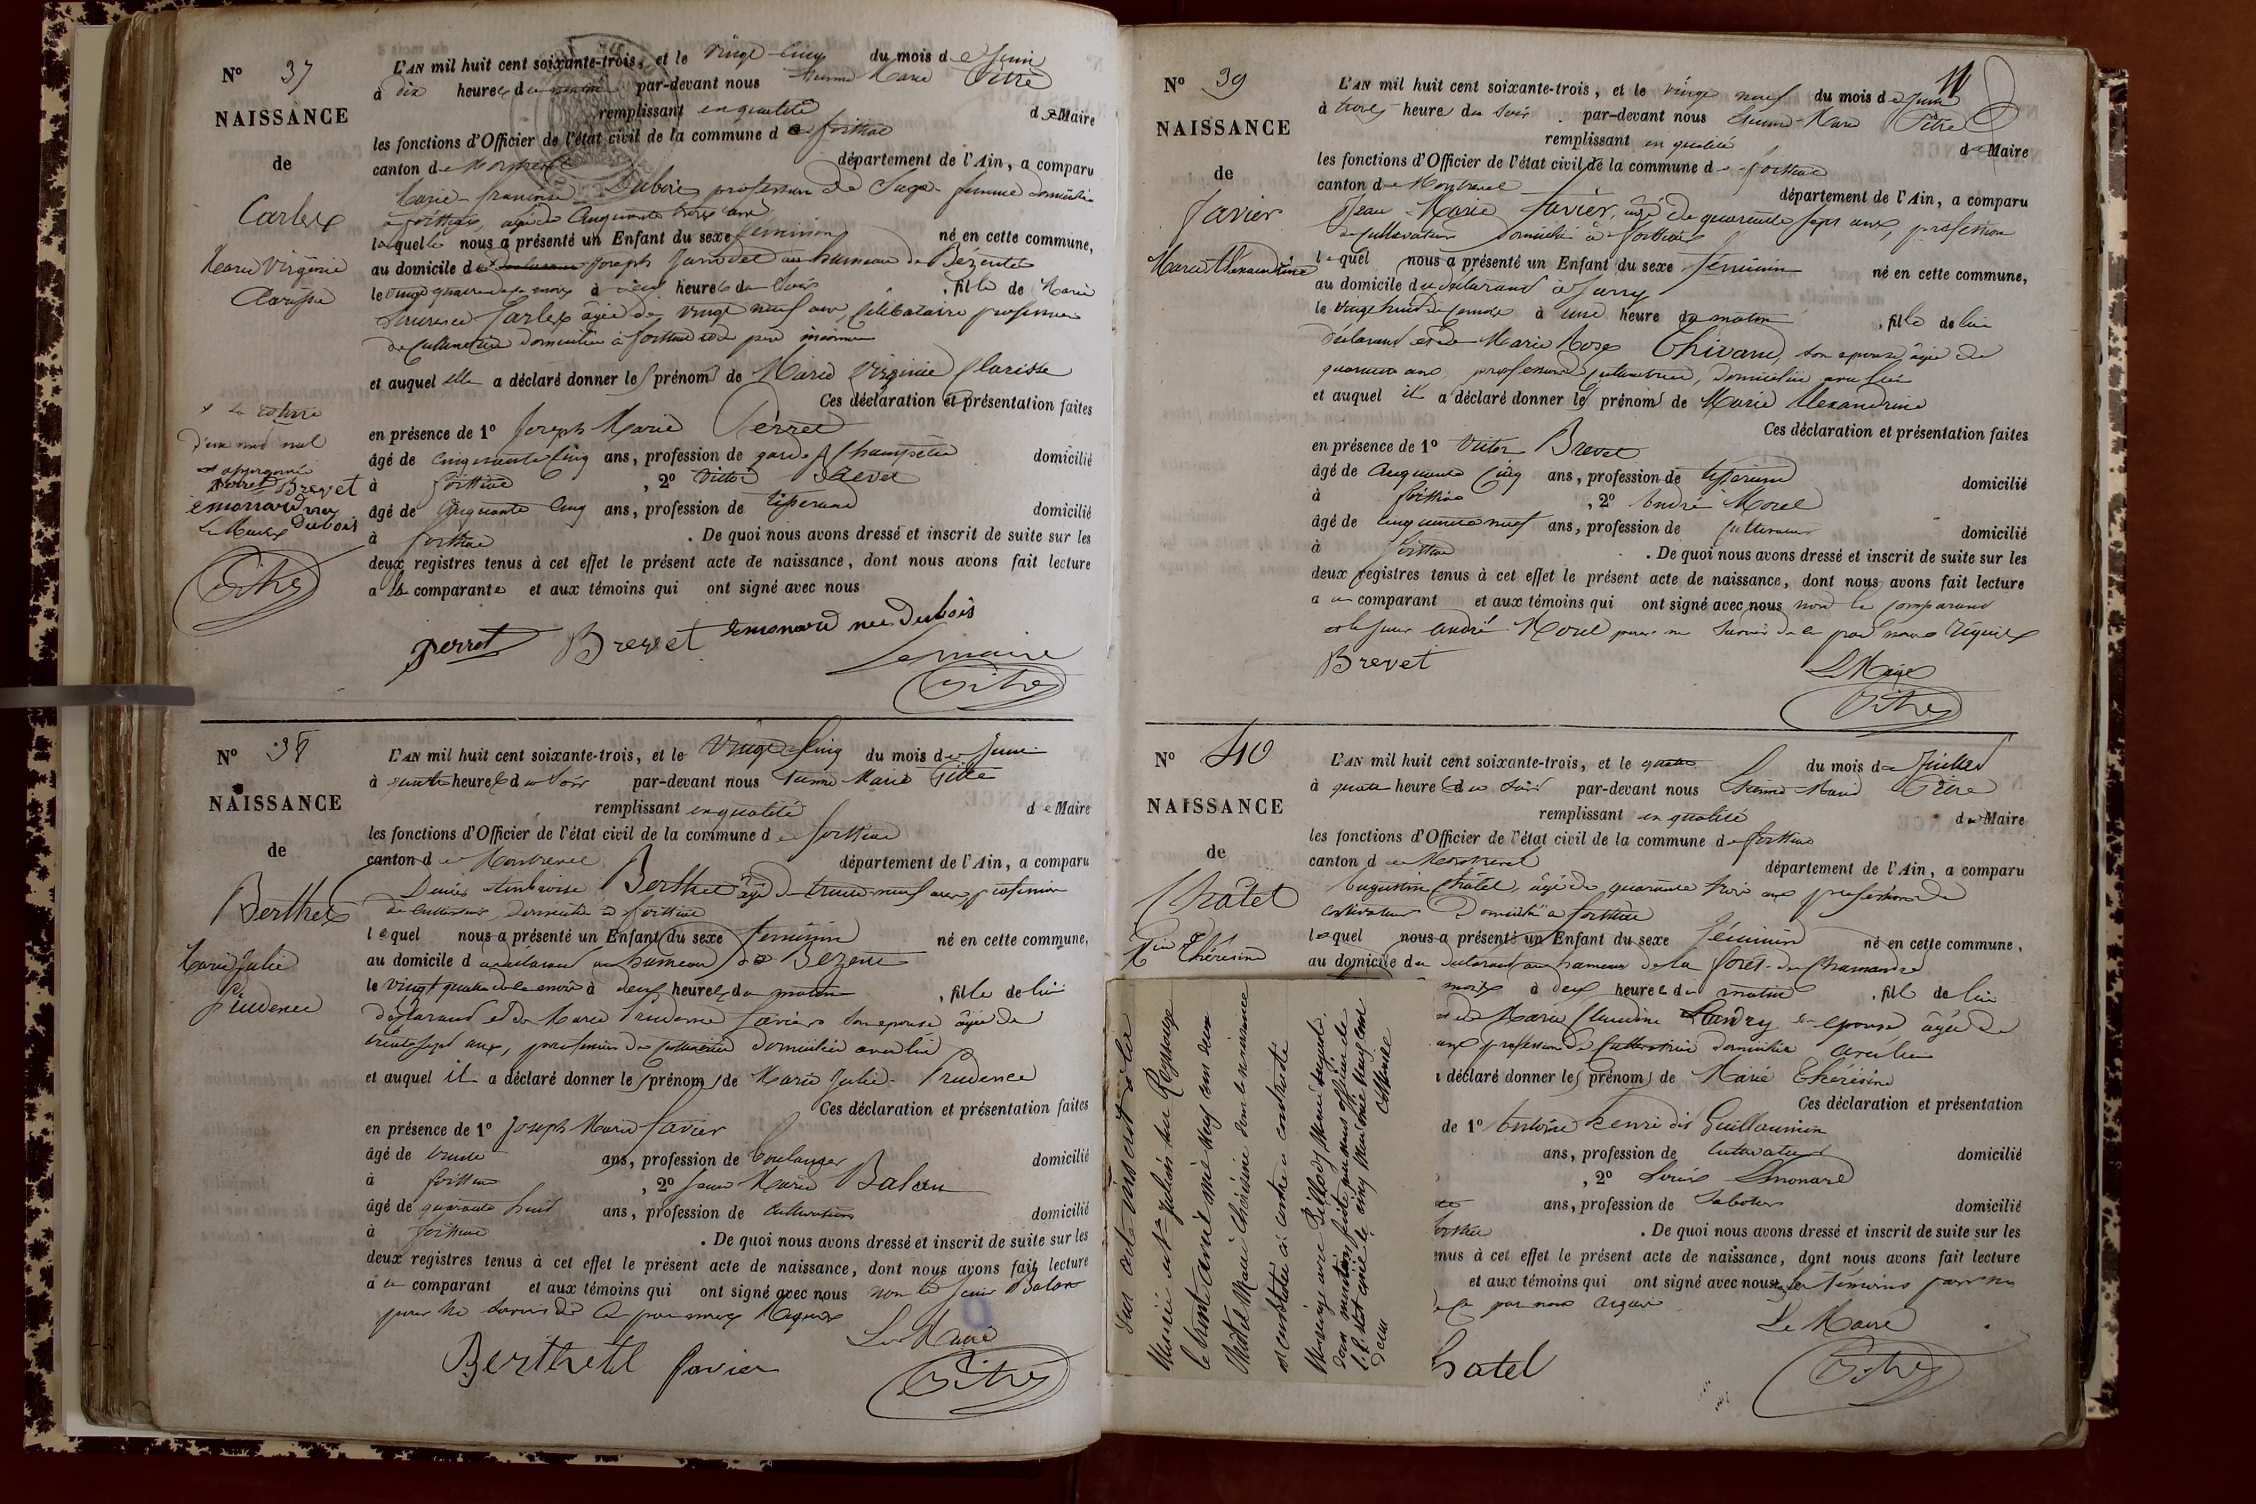 N° 37
NAISSANCE
de
Carlex
Marie Virginie
Clarisse
L'AN mil huit cent soixante-trois, et le vingt-cinq du mois de Juin
à dix heures du matin par-devant nous Etienne Marie Pitre
remplissant en qualité de Maire
les fonctions d'Officier de l'état civil de la commune de foissiat
canton de Montrevel département de l'Ain, a comparu
Marie-françoise Dubois profession de Sage-femme domiciliée
à foissiat, âgée de cinquante trois ans
laquelle nous a présenté un Enfant du sexe féminin né en cette commune,
au domicile de Joseph au hameau de Bezentet
le vingt quatre de ce mois à heures du Soir, fille de Marie
Carlex âgée de vingt neuf ans, Célibataire profession
de Cultivatrice domiciliée à foissiat et de père inconnu
et auquel elle a déclaré donner les prénoms de Marie Virginie Clarisse
Ces déclaration et présentation faites
en présence de 1° Joseph Marie Perret
âgé de cinquante cinq ans, profession de garde Champêtre domicilié
à foissiat, 2° Victor Brevet
âgé de cinquante cinq ans, profession de tisserand domicilié
à foissiat. De quoi nous avons dressé et inscrit de suite sur les
deux registres tenus à cet effet le présent acte de naissance, dont nous avons fait lecture
a la comparante et aux témoins qui ont signé avec nous
d'un mot nul
et approuvée
perret Brevet
emonard née
Dubois
Le Maire
Pitre
perret Brevet Emonard née Dubois
Le maire
Pitre
N° 38
NAISSANCE
de
Berthet
Marie Julie
Prudence
L'AN mil huit cent soixante-trois, et le vingt-Cinq du mois de Juin
à quatre heures du Soir par-devant nous Etienne Marie Pitre
remplissant en qualité de Maire
les fonctions d'Officier de l'état civil de la commune de foissiat
canton de Montrevel département de l'Ain, a comparu
Denis Ambroise Berthet âgé de trente-neuf ans profession
de Cultivateur, Domicilié à foissiat
lequel nous a présenté un Enfant du sexe féminin né en cette commune,
au domicile du déclarant au hameau de Bezentet
le vingt quatre de ce mois à heures du matin, fille de lui
déclarant et de Marie Prudence favier son épouse âgée de
trente sept ans, profession de Cultivatrice domiciliée avec lui
et auquel il a déclaré donner les prénoms de Marie Julie Prudence
Ces déclaration et présentation faites
en présence de 1° Joseph Marie favier
âgé de trente ans, profession de boulanger domicilié
à foissiat, 2° Jean Marie Balan
âgé de quarante huit ans, profession de Cultivateur domicilié
à foissiat. De quoi nous avons dressé et inscrit de suite sur les
deux registres tenus à cet effet le présent acte de naissance, dont nous avons fait lecture
a u comparant et aux témoins qui ont signé avec nous non le sieur Balan
pour ne Savoir de ce par nous Requis
Le Maire
Berthett favier
Pitre
N° 39
NAISSANCE
de
favier
Marie Alexandrine
11
L'AN mil huit cent soixante-trois, et le vingt neuf du mois de Juin
à trois heures du Soir par-devant nous Etienne-Marie Pitre
remplissant en qualité de Maire
les fonctions d'Officier de l'état civil de la commune de foissiat
canton de Montrevel département de l'Ain, a comparu
Jean-Marie favier, âgé de quarante sept ans, profession
de Cultivateur domicilié à foissiat
lequel nous a présenté un Enfant du sexe féminin né en cette commune,
au domicile du déclarant à
le vingt huit de ce mois à une heure du matin, fille de lui
déclarant et de Marie Rose Chivard, son épouse, âgée de
quarante ans, profession Cultivatrice, domiciliée avec lui
et auquel il a déclaré donner les prénoms de Marie Alexandrine
Ces déclaration et présentation faites
en présence de 1° Victor Brevet
âgé de cinquante cinq ans, profession de tisserand domicilié
à foissiat, 2° André Morel
âgé de cinquante neuf ans, profession de cultivateur domicilié
à foissiat. De quoi nous avons dressé et inscrit de suite sur les
deux registres tenus à cet effet le présent acte de naissance, dont nous avons fait lecture
a u comparant et aux témoins qui ont signé avec nous non le comparant
et le sieur André Morel pour ne Savoir de ce par nous Requis
Brevet
Le Maire
Pitre
N° 40
NAISSANCE
de
Châtel
Mie Thérésine
L'AN mil huit cent soixante-trois, et le quatre du mois de Juillet
à quatre heures du Soir par-devant nous Etienne Marie Pitre
remplissant en qualité de Maire
les fonctions d'Officier de l'état civil de la commune de foissiat
canton de Montrevel département de l'Ain, a comparu
Augustin Châtel, âgé de quarante trois ans profession de
cultivateur Domicilié à foissiat
lequel nous a présenté un Enfant du sexe féminin né en cette commune,
au domicile du déclarant au hameau de la forêt-de
mois à deux heures du matin, fille de lui
et de Marie Claudine Landry son épouse âgée de
ans profession de Cultivatrice domiciliée avec lui
déclaré donner les prénoms de Marie Thérésine
Ces déclaration et présentation
de 1° Antoine ferri dit Guillaumin
ans, profession de Cultivateur domicilié
, 2° Louis Emonard
ans, profession de Sabotier domicilié
foissiat. De quoi nous avons dressé et inscrit de suite sur les
nus à cet effet le présent acte de naissance, dont nous avons fait lecture
et aux témoins qui ont signé avec nous les témoins pour ne
de ce par nous requis
Le Maire
hatel
Pitre
Sur acte inscrit à la
Mairie de St Julien sur Reyssouze
le trente avril mil neuf cent deux
Châtel Marie Thérésine dont la naissance
est constatée ci contre a contracté
Mariage avec Pillard Marie Auguste.
dont mention faite par nous officier de
l'état civil le cinq Mai mil neuf cent
deux